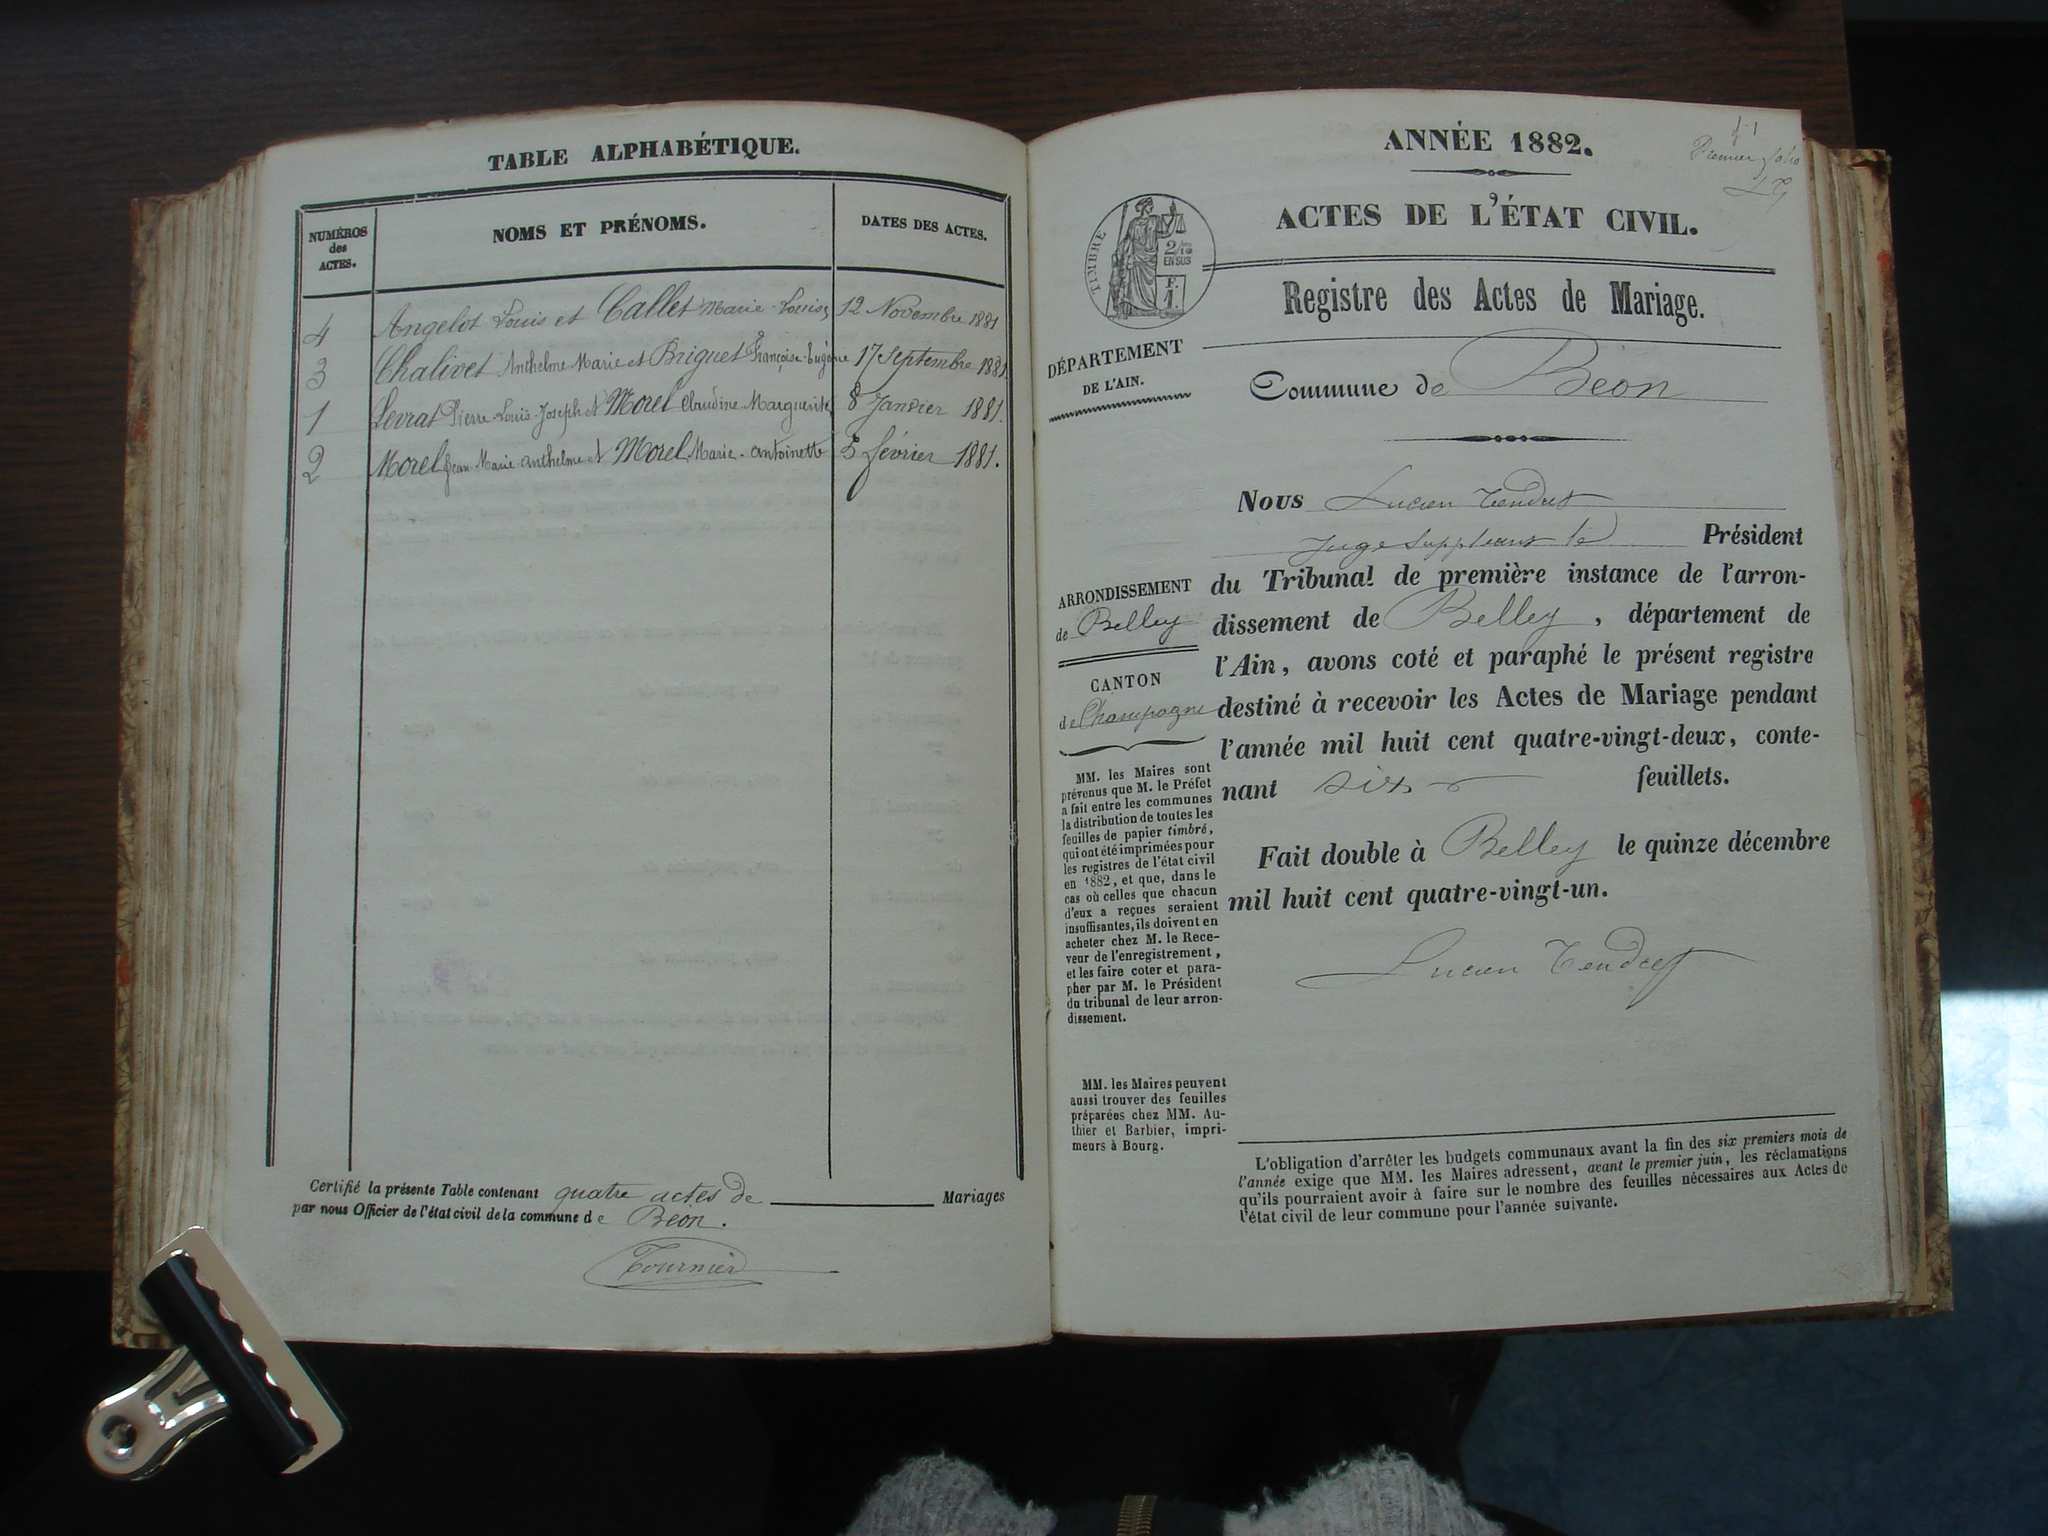 TABLE ALPHABÉTIQUE.
NUMÉROS
des
ACTES.
NOMS ET PRÉNOMS.
DATES DES ACTES.
4 Angelot Louis et Callet Marie-Louise, 12 Novembre 1881
3 Chalivet Anthelme Marie et Briguet Françoise-Eugénie 17 Septembre 1881.
1 Levrat Pierre-Louis-Joseph et Morel Claudine Marguerite 8 Janvier 1881.
2 Morel Jean Marie Anthelme et Morel Marie-Antoinette 5 février 1881.
Certifié la présente Table contenant quatre actes de Mariages
par nous Officier de l'état civil de la commune de Béon.
Tournier
ANNÉE 1882.
f. 1
Premier folio
LT
ACTES DE L'ÉTAT CIVIL.
TIMBRE
2/10
EN SUS
F.
1.
Registre des Actes de Mariage.
DÉPARTEMENT
DE L'AIN.
Commune de Béon
Nous Lucien Tendret
Juge suppléant le Président
du Tribunal de première instance de l'arron-
dissement de Belley, département de
l'Ain, avons coté et paraphé le présent registre
destiné à recevoir les Actes de Mariage pendant
l'année mil huit cent quatre-vingt-deux, conte-
nant six feuillets.
Fait double à Belley le quinze décembre
mil huit cent quatre-vingt-un.
Lucien Tendret
ARRONDISSEMENT
de Belley
CANTON
de Champagne
MM. les Maires sont
prévenus que M. le Préfet
a fait entre les communes
la distribution de toutes les
feuilles de papier timbré,
qui ont été imprimées pour
les registres de l'état civil
en 1882, et que, dans le
cas où celles que chacun
d'eux a reçues seraient
insuffisantes, ils doivent en
acheter chez M. le Rece-
veur de l'enregistrement,
et les faire coter et para-
pher par M. le Président
du tribunal de leur arron-
dissement.
MM. les Maires peuvent
aussi trouver des feuilles
préparées chez MM. Au-
thier et Barbier, impri-
meurs à Bourg.
L'obligation d'arrêter les budgets communaux avant la fin des six premiers mois de
l'année exige que MM. les Maires adressent, avant le premier juin, les réclamations
qu'ils pourraient avoir à faire sur le nombre des feuilles nécessaires aux Actes de
l'état civil de leur commune pour l'année suivante.